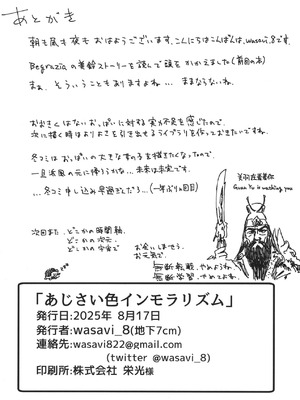 あとがき
朝も昼も夜もおはようございます。こんにちはこんばんは、wasavi_8です。
の着齢ストーリーを読んで頭をかかえました(前回の本)
まぁ、そういうこともありますよね… ままならないね。
おおきくはないおっぱいに対する実力不足を感じたので、
次に描く時はよりよさを引き出せるライブラリを作っておきたいですね。
冬コミはおっぱいの大きな女の子を描きたくなったので、
一旦浜風の元に帰ろうかな…未来は未定です。
…冬コミ申し込み早過ぎだろ…(一年ぶり回目)
次回また、どこかの時間軸、
どこかの次元、
どこかの宇宙で
お会いしましょう。
お元気で、
無断転載、やめようね。
無断学習、やめてよね。
美羽在看着你
Guan Yu is watching you
「あじさい色インモラリズム」
発行日:2025年 8月17日
発行者:wasavi_8(地下7cm)
連絡先:wasavi822@gmail.com
(twitter @wasavi_8)
印刷所:株式会社 栄光様